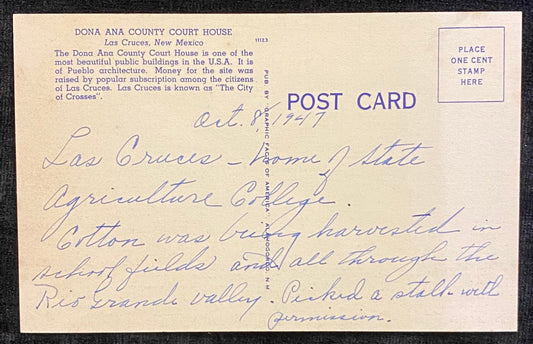 DONA ANA COUNTY COURT HOUSE
Las Cruces, New Mexico
11123
The Dona Ana County Court House is one of the
most beautiful public buildings in the U.S.A. It is
of Pueblo architecture. Money for the site was
raised by popular subscription among the citizens
of Las Cruces. Las Cruces is known as "The City
of Crosses".
PUB. BY GRAPHIC FACTS OF AMERICA, ALAMOGORDO, N.M.
POST CARD
PLACE
ONE CENT
STAMP
HERE
Oct. 8, 1947
Las Cruces - home of State
Agriculture College.
Cotton was being harvested in
school fields and all through the
Rio Grande valley. Picked a stalk with
permission.